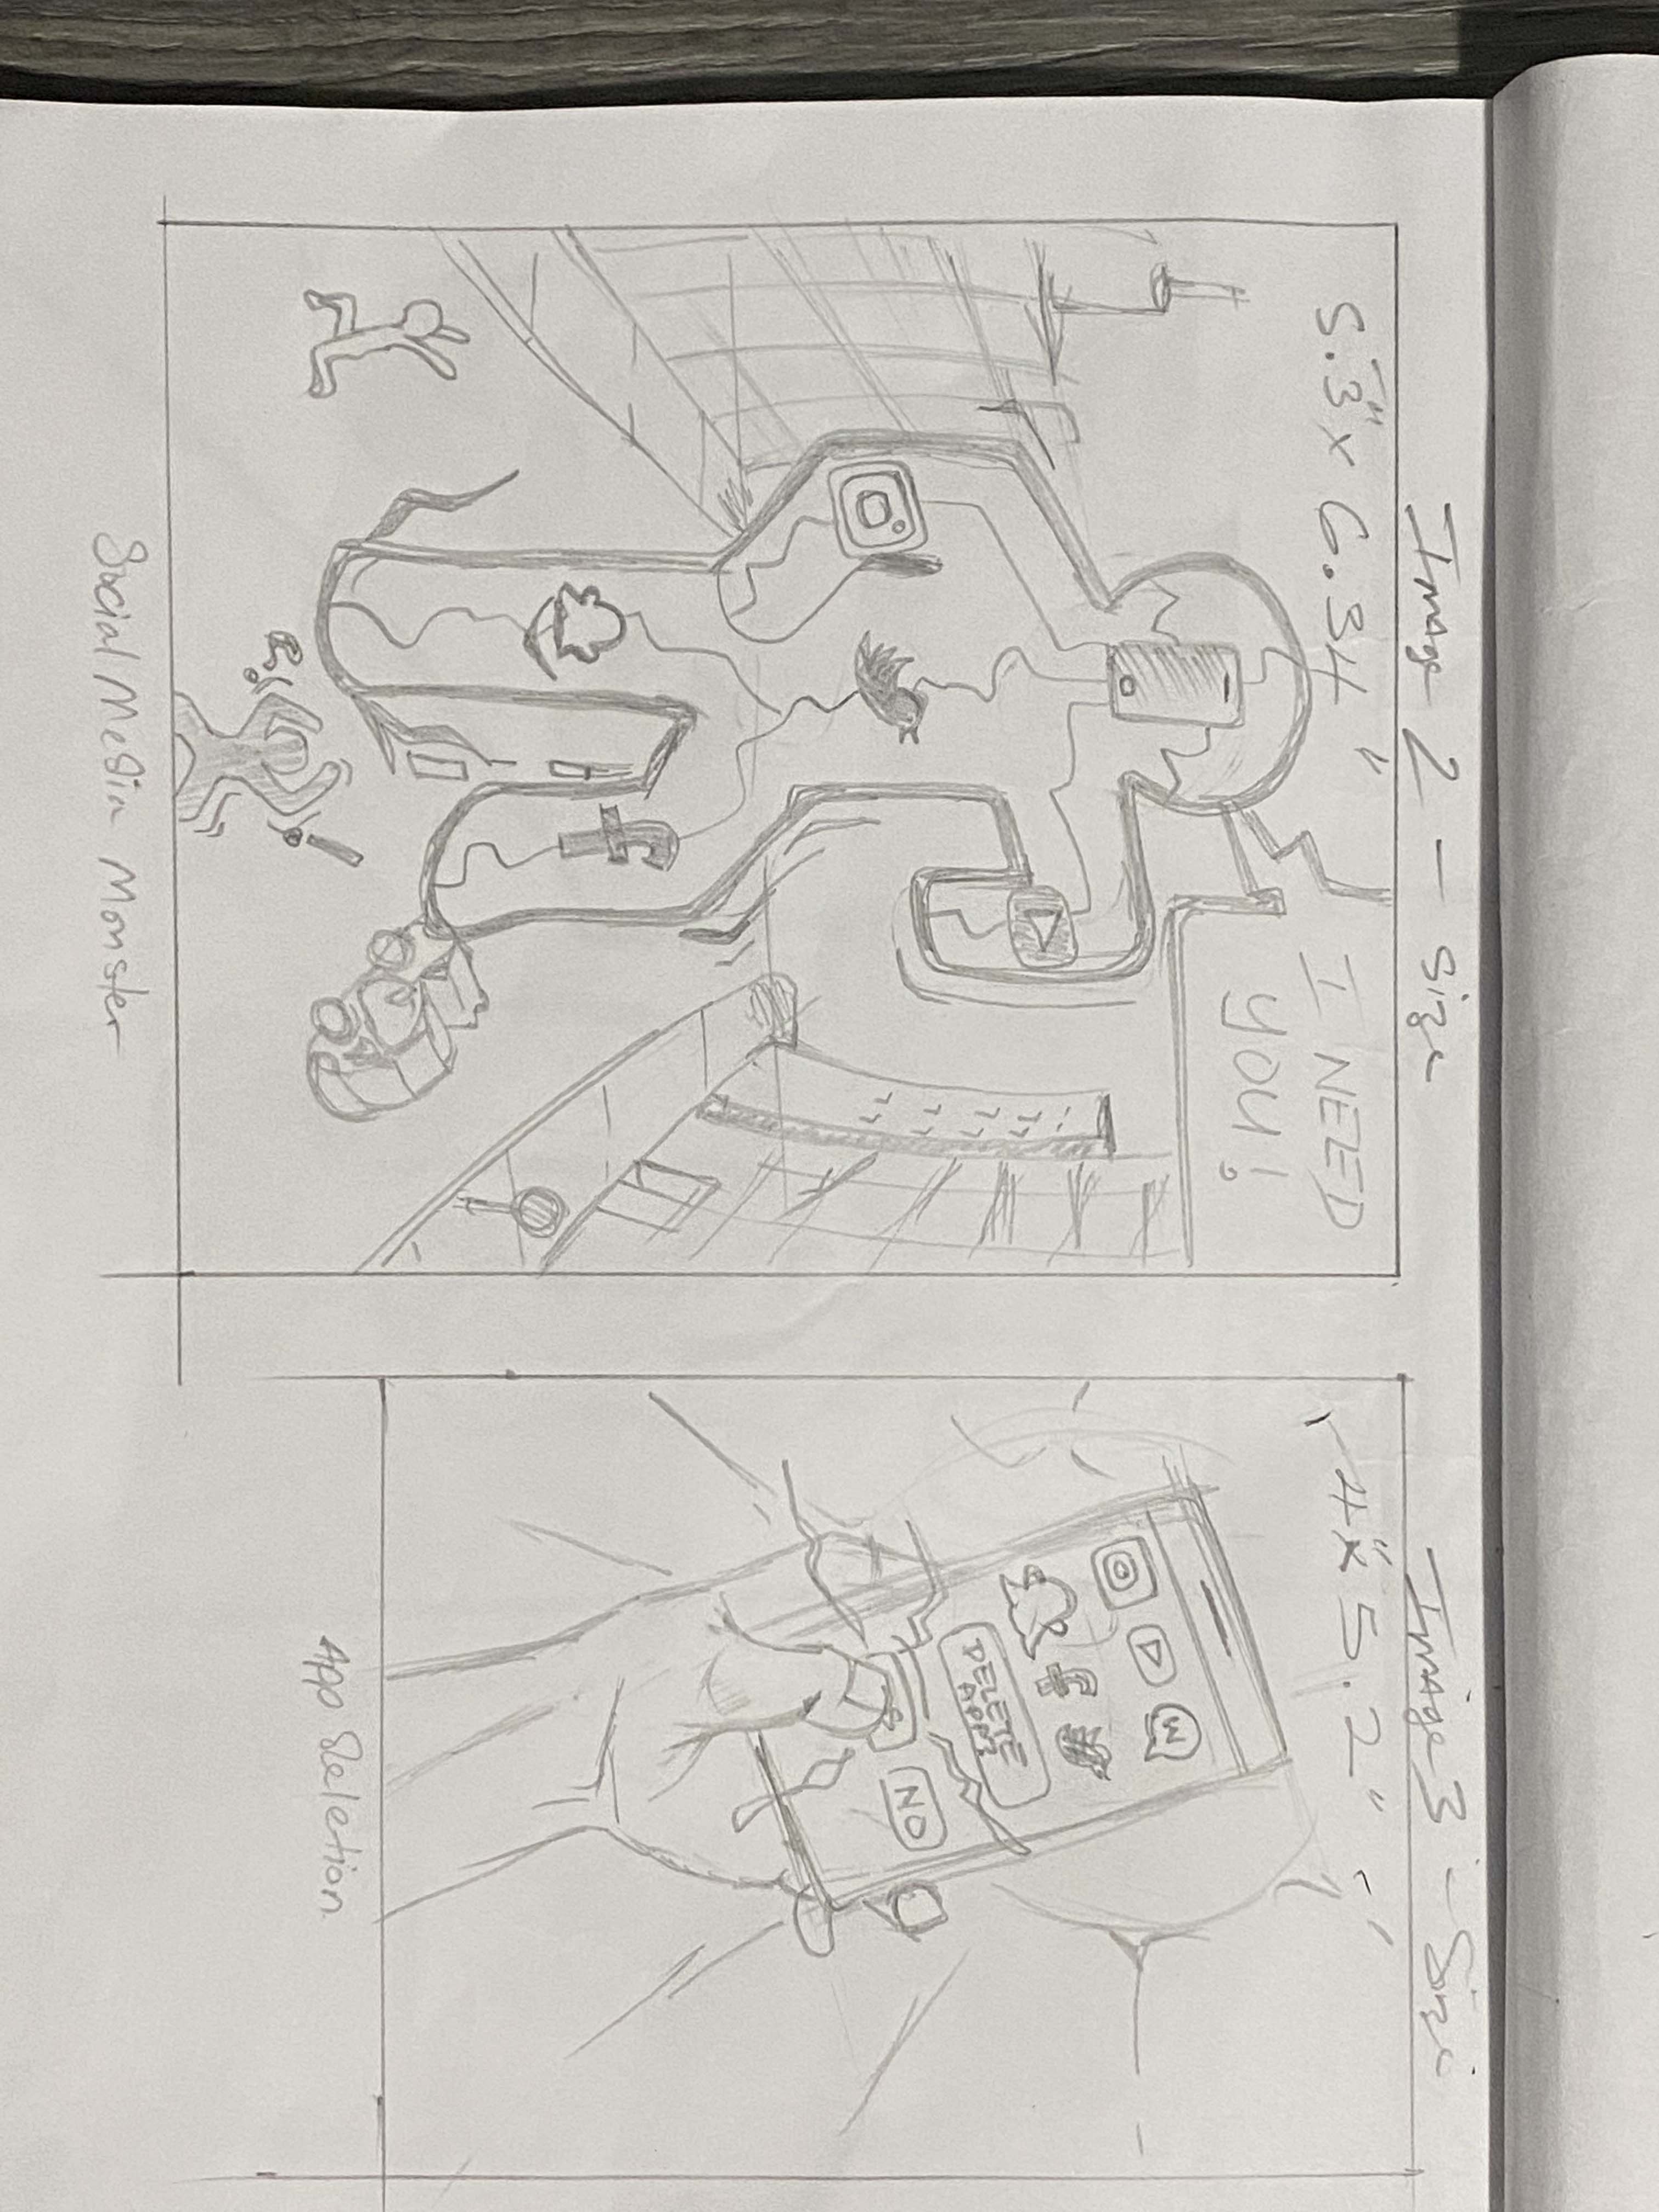 Image 2 - Size
5.3" x 6.34"
I NEED
YOU!
Social Media Monster
Image 3 - Size
4" x 5.2"
DELETE
APP?
NO
App Deletion